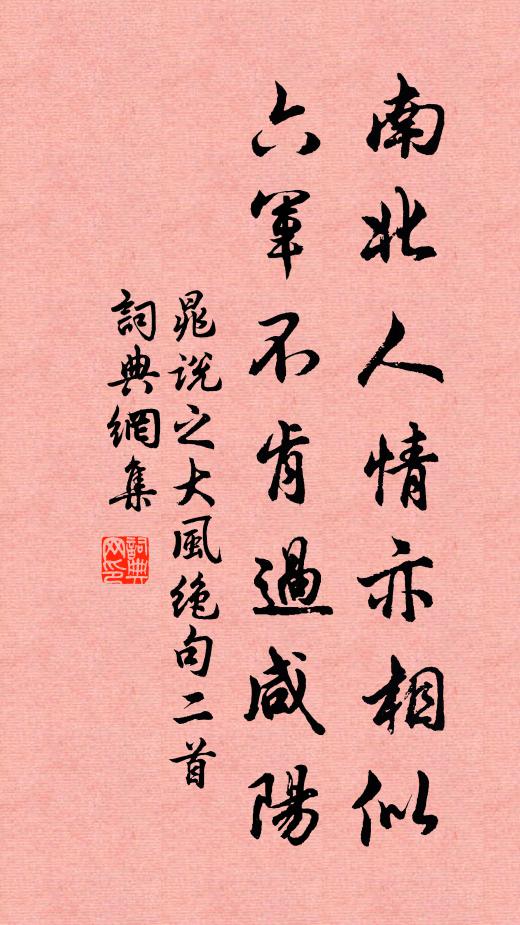 南北人情亦相似
六軍不肯過咸陽
晁說之大風絶句二首
詞典網集
詞典
网印